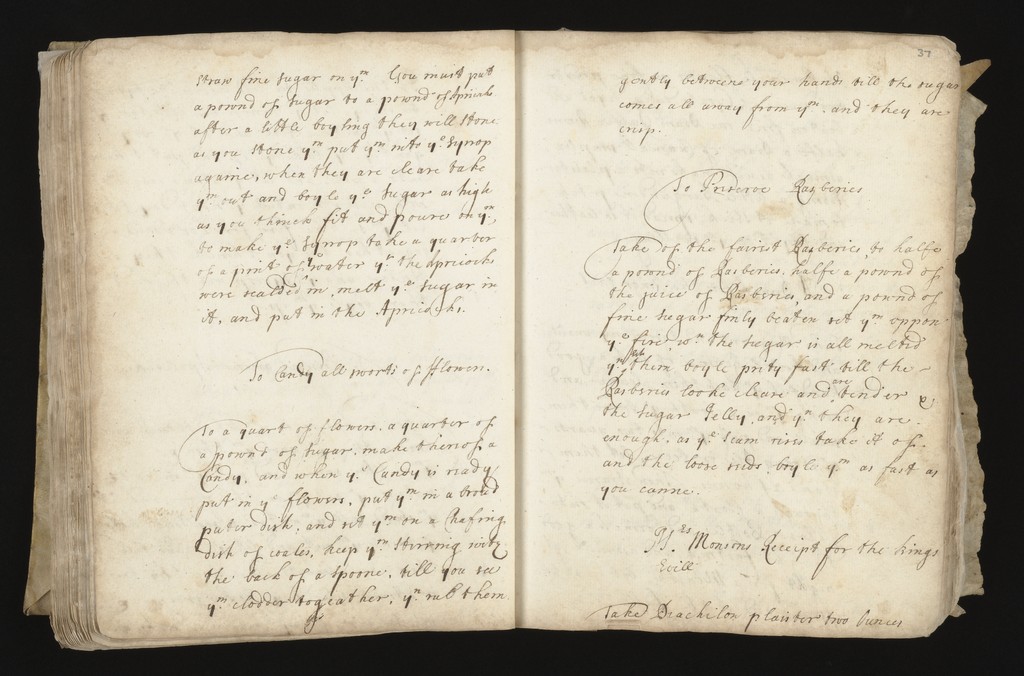 straw fine sugar on ym. You must put
a pownd of sugar to a pownd of Apricoks
after a little boyling they will stone
as you stone ym put ym into ye syrop
againe, when they are cleare take
ym out and boyle ye sugar as high
as you thinck fit and poure on ym,
to make ye syrop take a quarter
of a pint of ye water yt the Apricocks
were scalded in, melt ye sugar in
it, and put in the Apricocks.
To Candy all sworts of fflowers.
To a quart of flowers, a quarter of
a pownd of sugar, make thereof a
Candy, and when ye Candy is ready
put in ye flowers, put ym in a broad
puter dish, and set ym on a Chafing
dish of coales, keep ym stirring with
the back of a spoone, till you see
ym clodder togeather, yn rub them
37
gently betweene your hands till the sugar
comes all away from ym, and they are
crisp.
To Preserve Rasberies
Take of the fairest Rasberies, to halfe
a pownd of Rasberies, halfe a pownd of
the juice of Rasberies, and a pownd of
fine sugar finly beaten set ym oppon
ye fire, wn the sugar is all melted
yn let them boyle prity fast till the
Rasberies looke cleare and are tender &
the sugar Jelly, and yn they are
enough, as ye scum rises take it of
and the loose seeds, boyle ym as fast as
you canne.
Mrs Monsons Receipt for the kings
Evill
Take Diachilon plaister two Ounces